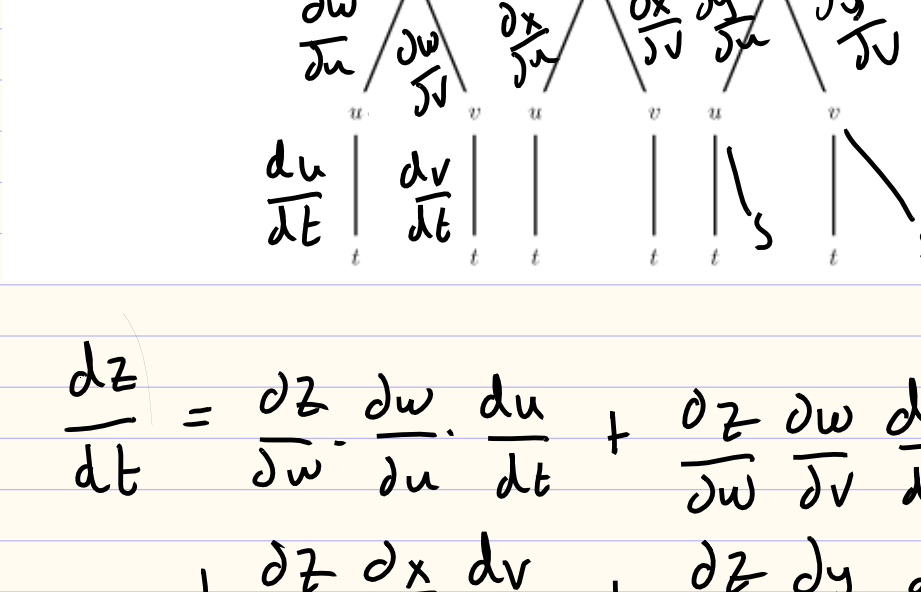 ∂w/∂u ∂w/∂v ∂x/∂u ∂x/∂v ∂y/∂u ∂y/∂v
u v u v u v
du/dt dv/dt
s
t t t t t t
dz/dt = ∂z/∂w · ∂w/∂u · du/dt + ∂z/∂w ∂w/∂v
+ ∂z ∂x dv + ∂z ∂y